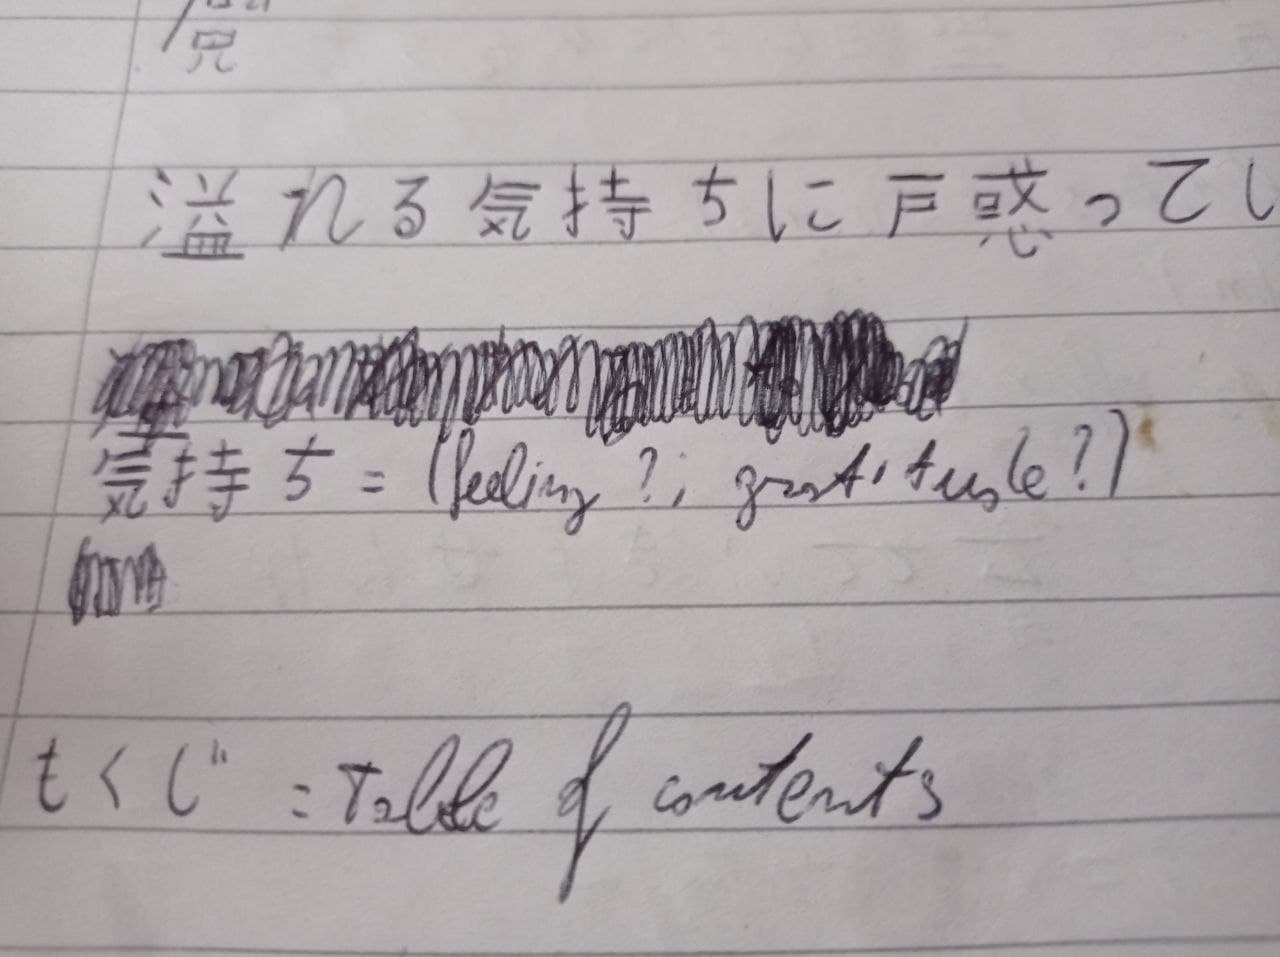 溢れる気持ちに戸惑ってし
気持ち = (feeling ?; gratitude ?)
もくじ = Table of contents